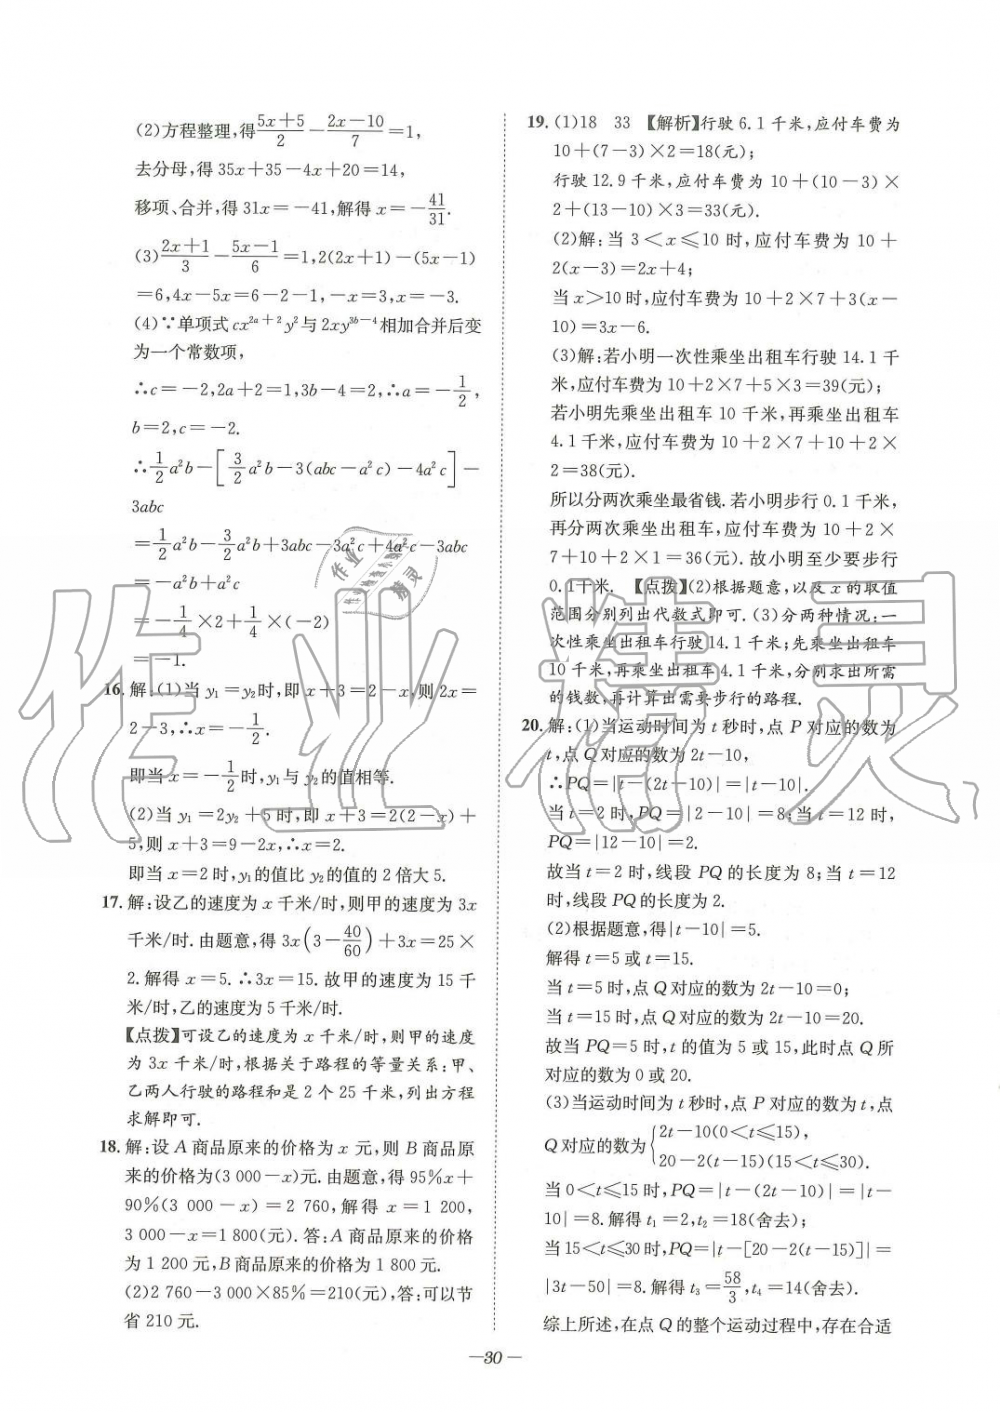 (2)方程整理,得(5x+5)/2-(2x-10)/7=1,
去分母,得 35x+35-4x+20=14,
移项、合并,得 31x=-41,解得 x=-41/31.
(3)(2x+1)/3-(5x-1)/6=1,2(2x+1)-(5x-1)
=6,4x-5x=6-2-1,-x=3,x=-3.
(4)∵单项式 cx²ᵃ⁺²y²与 2xy³ᵇ⁻⁴相加合并后变
为一个常数项,
∴c=-2,2a+2=1,3b-4=2,∴a=-1/2,
b=2,c=-2.
∴1/2a²b-[3/2a²b-3(abc-a²c)-4a²c]-
3abc
=1/2a²b-3/2a²b+3abc-3a²c+4a²c-3abc
=-a²b+a²c
=-1/4×2+1/4×(-2)
=-1.
16. 解:(1)当 y₁=y₂时,即 x+3=2-x,则 2x=
2-3,∴x=-1/2.
即当 x=-1/2时,y₁与 y₂的值相等.
(2)当 y₁=2y₂+5 时,即 x+3=2(2-x)+
5,则 x+3=9-2x,∴x=2.
即当 x=2 时,y₁的值比 y₂的值的 2 倍大 5.
17. 解:设乙的速度为 x 千米/时,则甲的速度为 3x
千米/时. 由题意,得 3x(3-40/60)+3x=25×
2. 解得 x=5. ∴3x=15. 故甲的速度为 15 千
米/时,乙的速度为 5 千米/时.
【点拨】可设乙的速度为 x 千米/时,则甲的速度
为 3x 千米/时,根据关于路程的等量关系:甲、
乙两人行驶的路程和是 2 个 25 千米,列出方程
求解即可.
18. 解:设 A 商品原来的价格为 x 元,则 B 商品原
来的价格为(3 000-x)元. 由题意,得 95%x+
90%(3 000-x)=2 760,解得 x=1 200,
3 000-x=1 800(元). 答:A 商品原来的价格
为 1 200 元,B 商品原来的价格为 1 800 元.
(2)2 760-3 000×85%=210(元),答:可以节
省 210 元.
19. (1)18 33 【解析】行驶 6.1 千米,应付车费为
10+(7-3)×2=18(元);
行驶 12.9 千米,应付车费为 10+(10-3)×
2+(13-10)×3=33(元).
(2)解:当 3<x≤10 时,应付车费为 10+
2(x-3)=2x+4;
当 x>10 时,应付车费为 10+2×7+3(x-
10)=3x-6.
(3)解:若小明一次性乘坐出租车行驶 14.1 千
米,应付车费为 10+2×7+5×3=39(元);
若小明先乘坐出租车 10 千米,再乘坐出租车
4.1 千米,应付车费为 10+2×7+10+2×
2=38(元).
所以分两次乘坐最省钱. 若小明步行 0.1 千米,
再分两次乘坐出租车,应付车费为 10+2×
7+10+2×1=36(元). 故小明至少要步行
0.1千米. 【点拨】(2)根据题意,以及 x 的取值
范围分别列出代数式即可. (3)分两种情况:一
次性乘坐出租车行驶 14.1 千米;先乘坐出租车
10 千米,再乘坐出租车 4.1 千米,分别求出所需
的钱数,再计算出需要步行的路程.
20. 解:(1)当运动时间为 t 秒时,点 P 对应的数为
t,点 Q 对应的数为 2t-10,
∴PQ=|t-(2t-10)|=|t-10|.
当 t=2 时,PQ=|2-10|=8;当 t=12 时,
PQ=|12-10|=2.
故当 t=2 时,线段 PQ 的长度为 8;当 t=12
时,线段 PQ 的长度为 2.
(2)根据题意,得|t-10|=5.
解得 t=5 或 t=15.
当 t=5 时,点 Q 对应的数为 2t-10=0;
当 t=15 时,点 Q 对应的数为 2t-10=20.
故当 PQ=5 时,t 的值为 5 或 15,此时点 Q 所
对应的数为 0 或 20.
(3)当运动时间为 t 秒时,点 P 对应的数为 t,点
Q 对应的数为{2t-10(0<t≤15),
20-2(t-15)(15<t≤30).
当 0<t≤15 时,PQ=|t-(2t-10)|=|t-
10|=8. 解得 t₁=2,t₂=18(舍去);
当 15<t≤30 时,PQ=|t-[20-2(t-15)]|=
|3t-50|=8. 解得 t₃=58/3,t₄=14(舍去).
综上所述,在点 Q 的整个运动过程中,存在合适
—30—
作业精灵